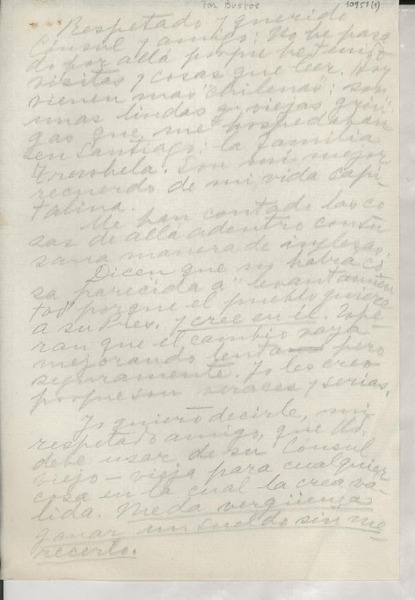 Tom Bustos
10951(1)
Respetado y querido
Cónsul y amigo: No he pasa
do por allá porque he tenido
visitas y cosas que leer. Hoy
vienen unas chilenas: son
unas lindas y viejas grin
gas que me hospedaban
en Santiago: la familia
. Son mi mejor
recuerdo de mi vida capi
talina.
Me han contado las co
sas de allá adentro con su
sana manera de inglesas.
Dicen que no habrá co
sa parecida a "levantamien
tos" porque el pueblo quiere
a su Pres. y cree en él. Espe
ran que el cambio vaya
mejorando lento pero
seguramente. Yo les creo
porque son veraces y serias.
Yo quiero decirle, mi
respetado amigo, que Ud.
debe usar de su Cónsul
viejo - vieja para cualquier
cosa en la cual la crea vá
lida. Me da vergüenza
ganar un sueldo sin me
recerlo.